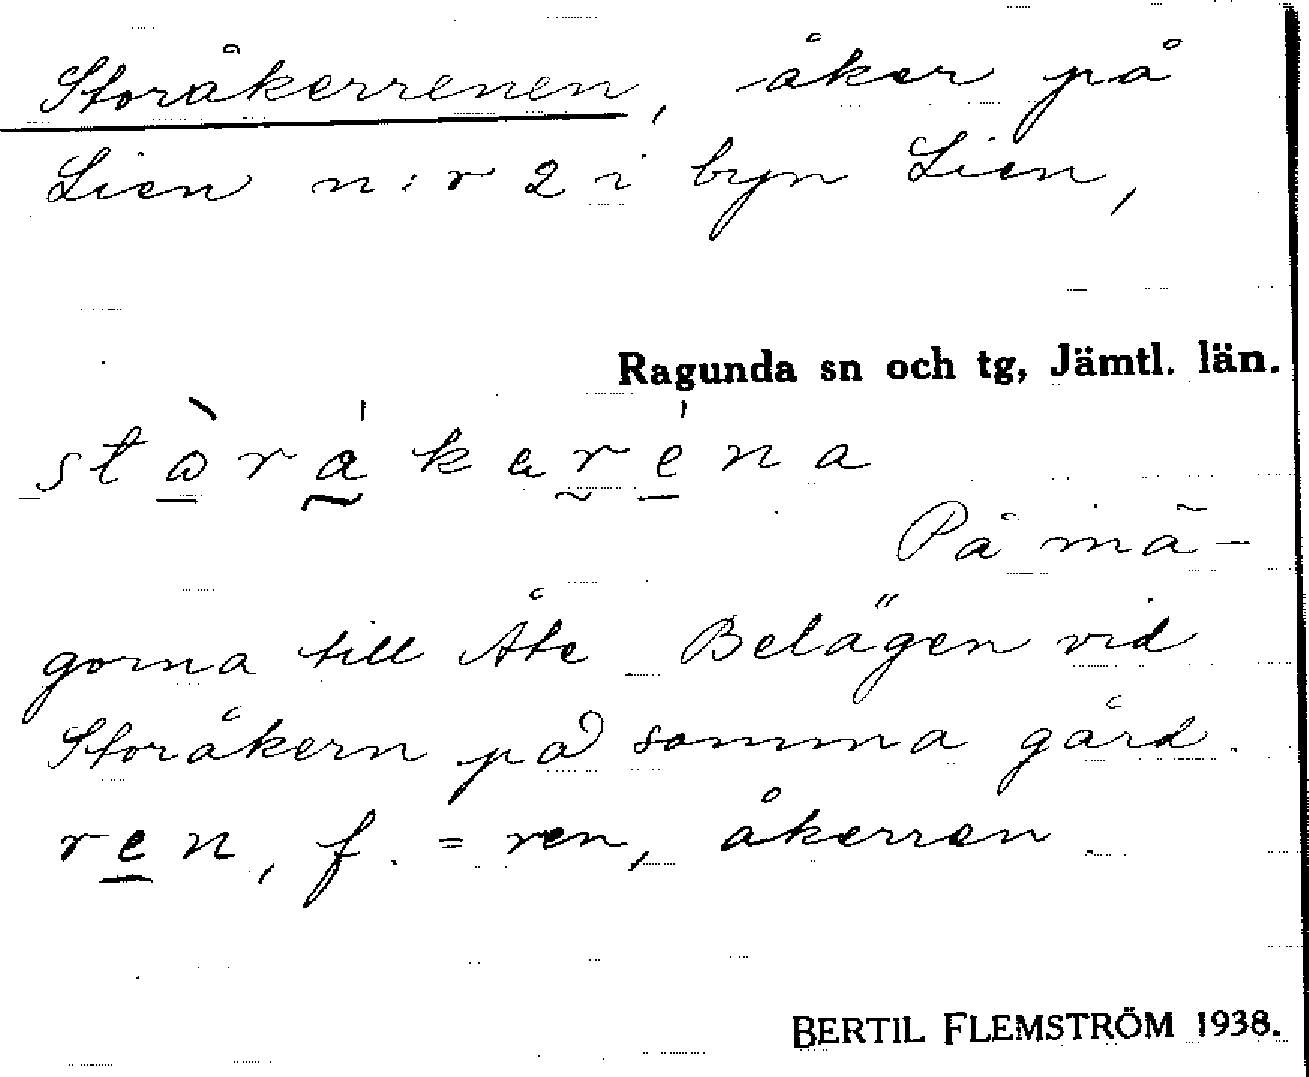 Storåkerrenen, åker på
Lien n:r 2 i byn Lien,
Ragunda sn och tg, Jämtl. län.
På mä-
gorna till Åte Belägen vid
Storåkern på samma gård.
ren, f. = ren, åkerren
BERTIL FLEMSTRÖM 1938.